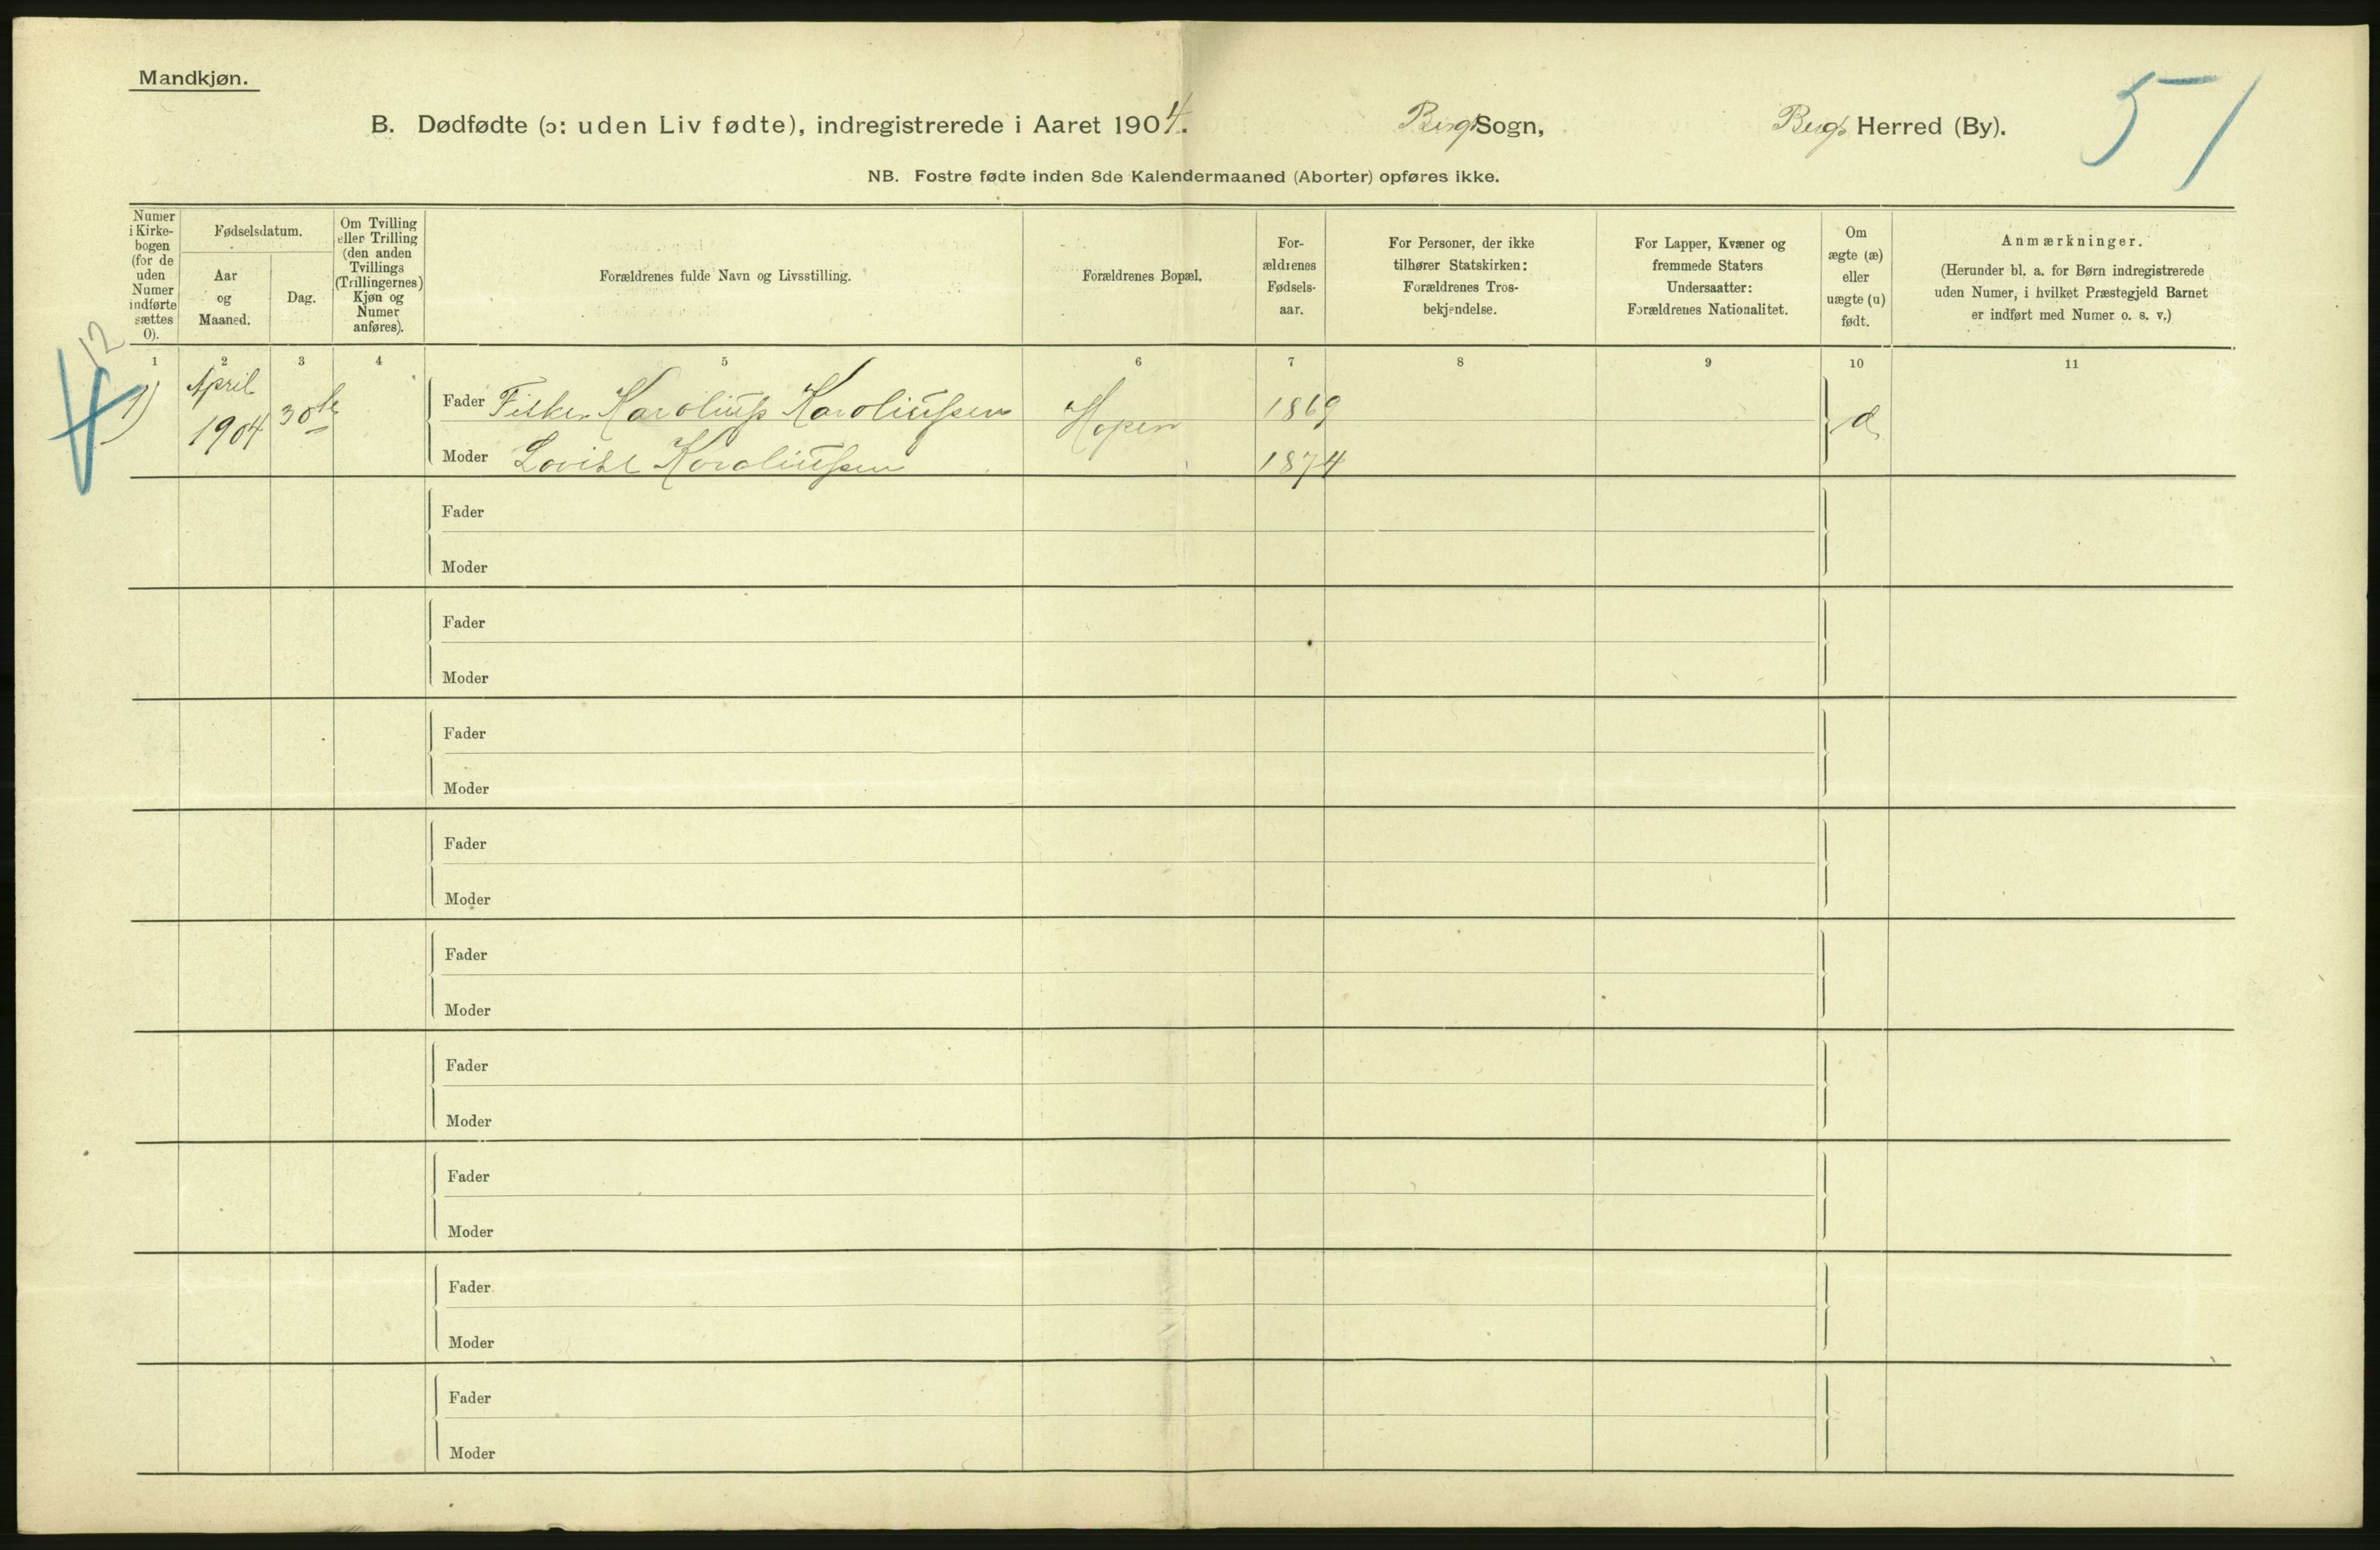 Mandkjøn.
B. Dødfødte (ɔ: uden Liv fødte), indregistrerede i Aaret 1904. Bergs Sogn, Bergs Herred (By). 51
NB. Fostre fødte inden 8de Kalendermaaned (Aborter) opføres ikke.
Numer
i Kirke-
bogen
(for de
uden
Numer
indførte
sættes
0).
Fødselsdatum.
Aar
og
Maaned.
Dag.
Om Tvilling
eller Trilling
(den anden
Tvillings
(Trillingernes)
Kjøn og
Numer
anføres).
Forældrenes fulde Navn og Livsstilling.
Forældrenes Bopæl.
For-
ældrenes
Fødsels-
aar.
For Personer, der ikke
tilhører Statskirken:
Forældrenes Tros-
bekjendelse.
For Lapper, Kvæner og
fremmede Staters
Undersaatter:
Forældrenes Nationalitet.
Om
ægte (æ)
eller
uægte (u)
født.
Anmærkninger.
(Herunder bl. a. for Børn indregistrerede
uden Numer, i hvilket Præstegjeld Barnet
er indført med Numer o. s. v.)
1 2 3 4 5 6 7 8 9 10 11
12
1)
April
1904
30te
Fader Fisker Karolius Karoliussen
Hopen
1869
Moder Lovise Karoliussen
1874
Fader
Moder
Fader
Moder
Fader
Moder
Fader
Moder
Fader
Moder
Fader
Moder
Fader
Moder
Fader
Moder
Fader
Moder